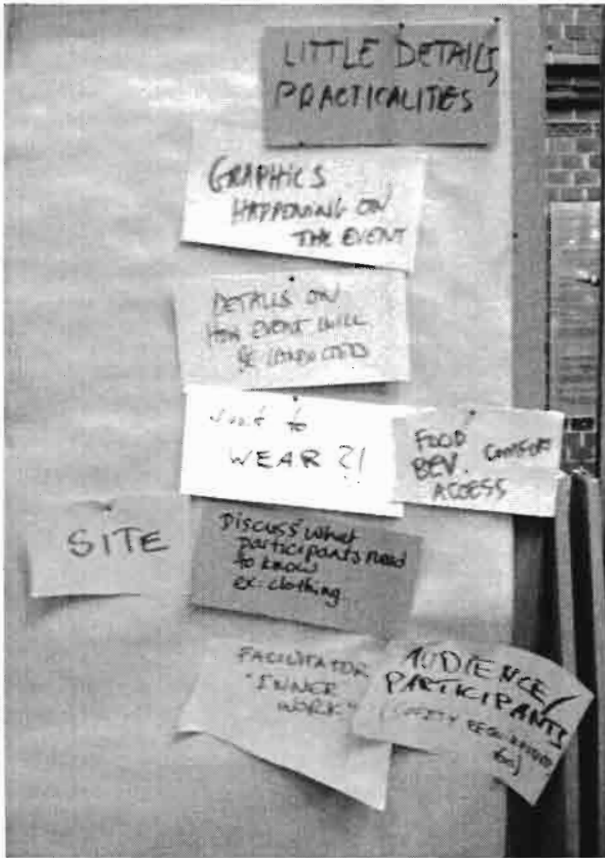 LITTLE DETAILS,
PRACTICALITIES
GRAPHICS
HAPPENING ON
THE EVENT
DETAILS ON
HOW EVENT WILL
BE CONDUCTED
to
WEAR ?!
FOOD
BEV. COMFORT
ACCESS
SITE
Discuss what
participants need
to know
ex: clothing
FACILITATOR
"INNER
WORK"
AUDIENCE/
PARTICIPANTS
(SAFETY